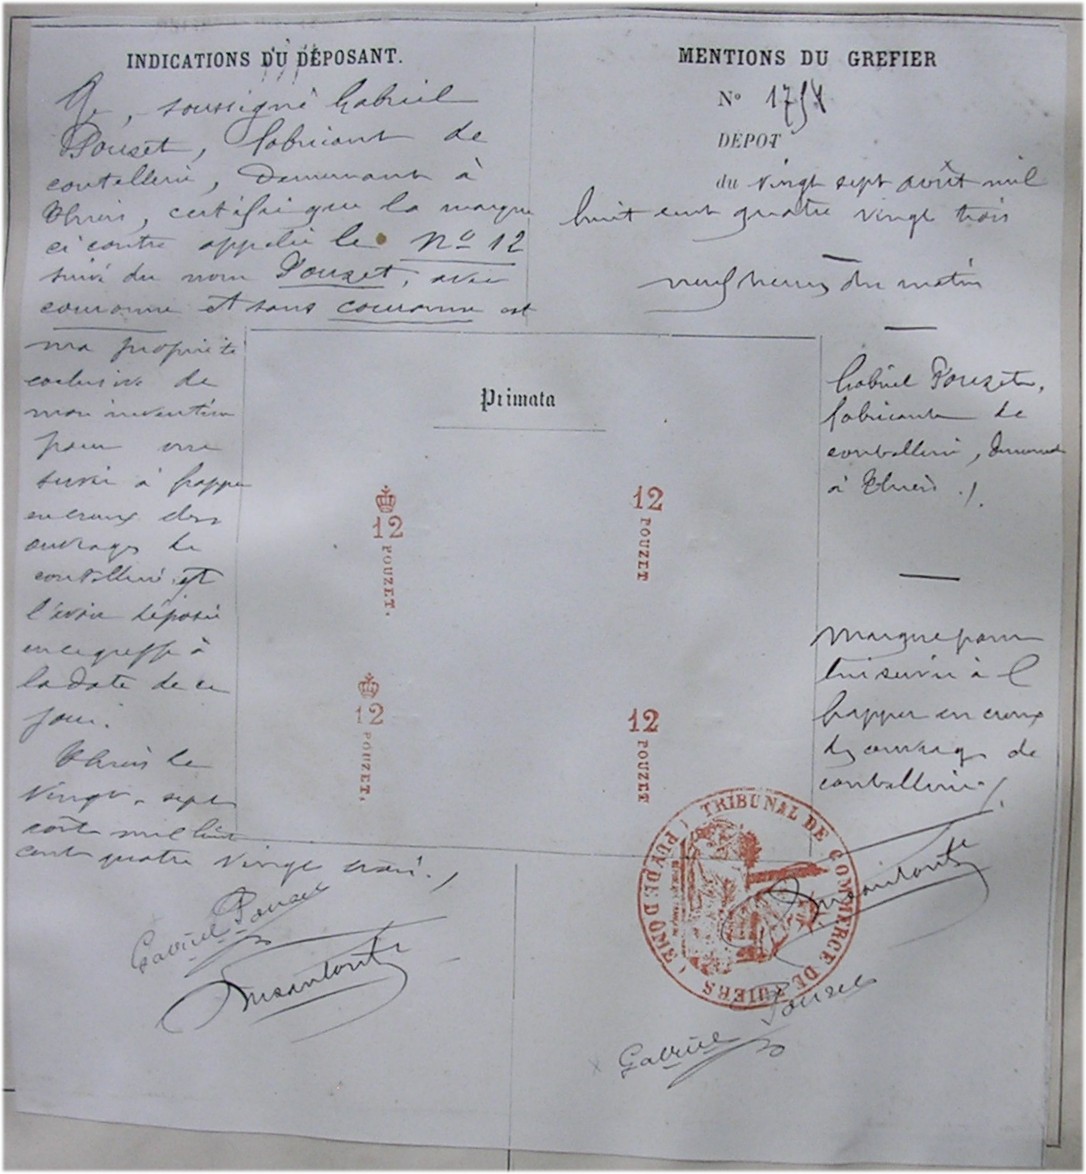 INDICATIONS DU DÉPOSANT.
Je, soussigné Gabriel
Pouzet, fabricant de
coutellerie, demeurant à
Thiers, certifie que la marque
ci contre appelée le No 12
suivi du nom Pouzet, avec
couronne et sans couronne est
ma propriété
exclusive de
mon invention
pour me
servir à frapper
en creux des
ouvrages de
coutellerie et
l'avoir déposée
en ce greffe à
la date de ce
jour.
Thiers le
vingt-sept
août mil huit
cent quatre vingt trois./
Gabriel Pouzet
MENTIONS DU GREFIER
No
DÉPOT
du vingt sept août mil
huit cent quatre vingt trois
neuf heures du matin
Gabriel Pouzet,
fabricant de
coutellerie, demeurant
à Thiers./
Marque pour
lui servir à
frapper en creux
des ouvrages de
coutellerie./
Primata
12
POUZET.
12
POUZET
12
POUZET.
12
POUZET
TRIBUNAL DE COMMERCE DE THIERS
(PUY DE DOME)
Gabriel Pouzet